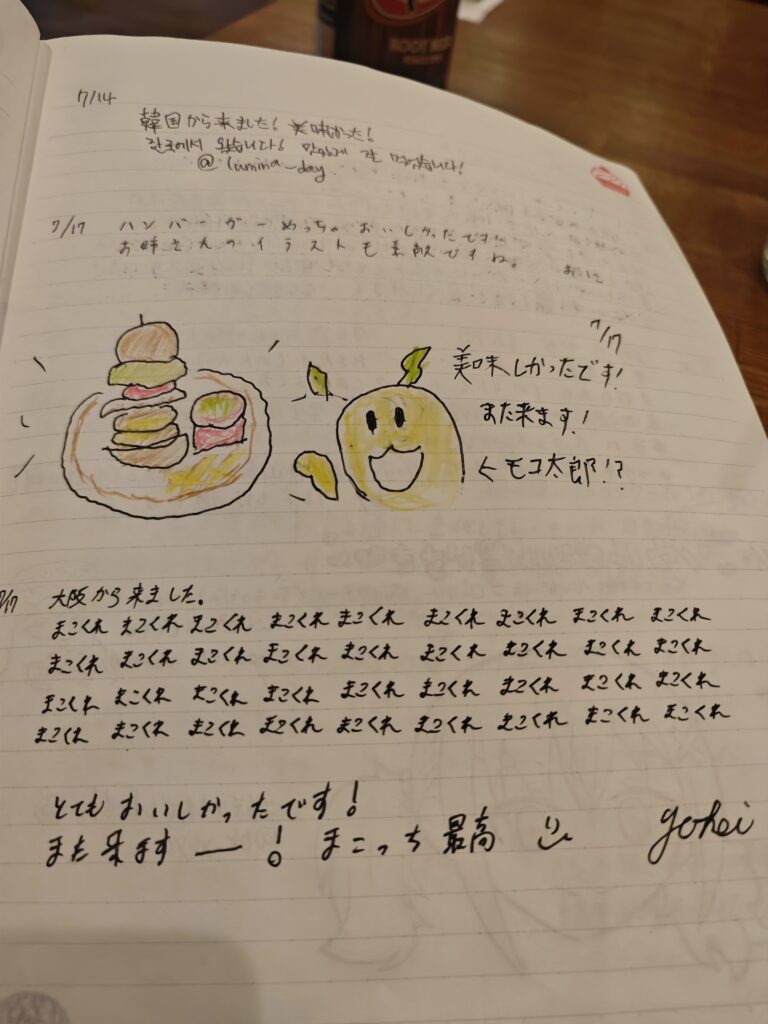 ROOT BEER
7/14
韓国から来ました! 美味かった!
한국에서 왔습니다! 맛있게 잘 먹었습니다!
@lumina_day
7/17 ハンバーガーめっちゃおいしかったです!!
お姉さんのイラストも素敵ですね。
7/17
美味しかったです!
また来ます!
< モコ太郎!?
7/17 大阪から来ました。
まこくれ まこくれ まこくれ まこくれ まこくれ まこくれ まこくれ まこくれ まこくれ
まこくれ まこくれ まこくれ まこくれ まこくれ まこくれ まこくれ まこくれ まこくれ
まこくれ まこくれ まこくれ まこくれ まこくれ まこくれ まこくれ まこくれ まこくれ
まこくれ まこくれ まこくれ まこくれ まこくれ まこくれ まこくれ まこくれ まこくれ
とてもおいしかったです!
また来ます ー! まこっち 最高 yohei